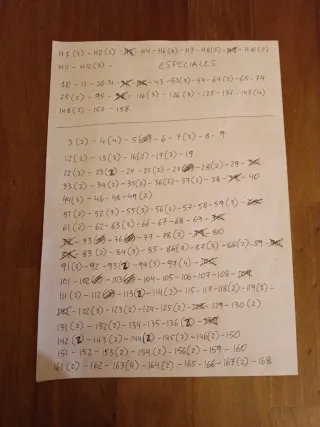 H3(2) - H2(2) - H4 - H6(2) - H7 - H8(3) - H10(2)
H11 - H12(3) -
ESPECIALES
10 - 11 - 20 - 43 - 53(3) - 54 - 64(2) - 65 - 74
75(2) - 95 - 116(3) - 126(3) - 127 - 137 - 147(4)
148(2) - 157 - 158
3(2) - 4(4) - 5 - 6 - 7(3) - 8 - 9
12(2) - 13(3) - 16(2) - 17(3) - 19
22(2) - 23(2) - 24 - 25(2) - 28(2) - 29
33(2) - 34(2) - 35(2) - 36(2) - 37(2) - 38 - 40
44(3) - 46 - 48 - 49(2)
51(2) - 52(3) - 55(3) - 56(2) - 57 - 58 - 59(3)
61(2) - 62 - 63(3) - 66 - 67 - 68 - 69
76 - 77 - 78(2) - 80
83(2) - 84(3) - 85 - 86(3) - 87(3) - 88(2) - 89
91(3) - 92 - 93(2) - 94(3) - 97(4)
101 - 102 - 103 - 104 - 105 - 106 - 107 - 108
111(2) - 112 - 113(2) - 114(2) - 115 - 117 - 118(2) - 119(2) -
122(3) - 123(2) - 124 - 125(2) - 129 - 130(2)
131(2) - 132(2) - 134 - 135 - 136(2)
142(2) - 143(2) - 144(2) - 145(2) - 146(2) - 150
151 - 152 - 153(2) - 154(2) - 156(2) - 159 - 160
161(2) - 162 - 163(4) - 164(2) - 165 - 166 - 167(2) - 168